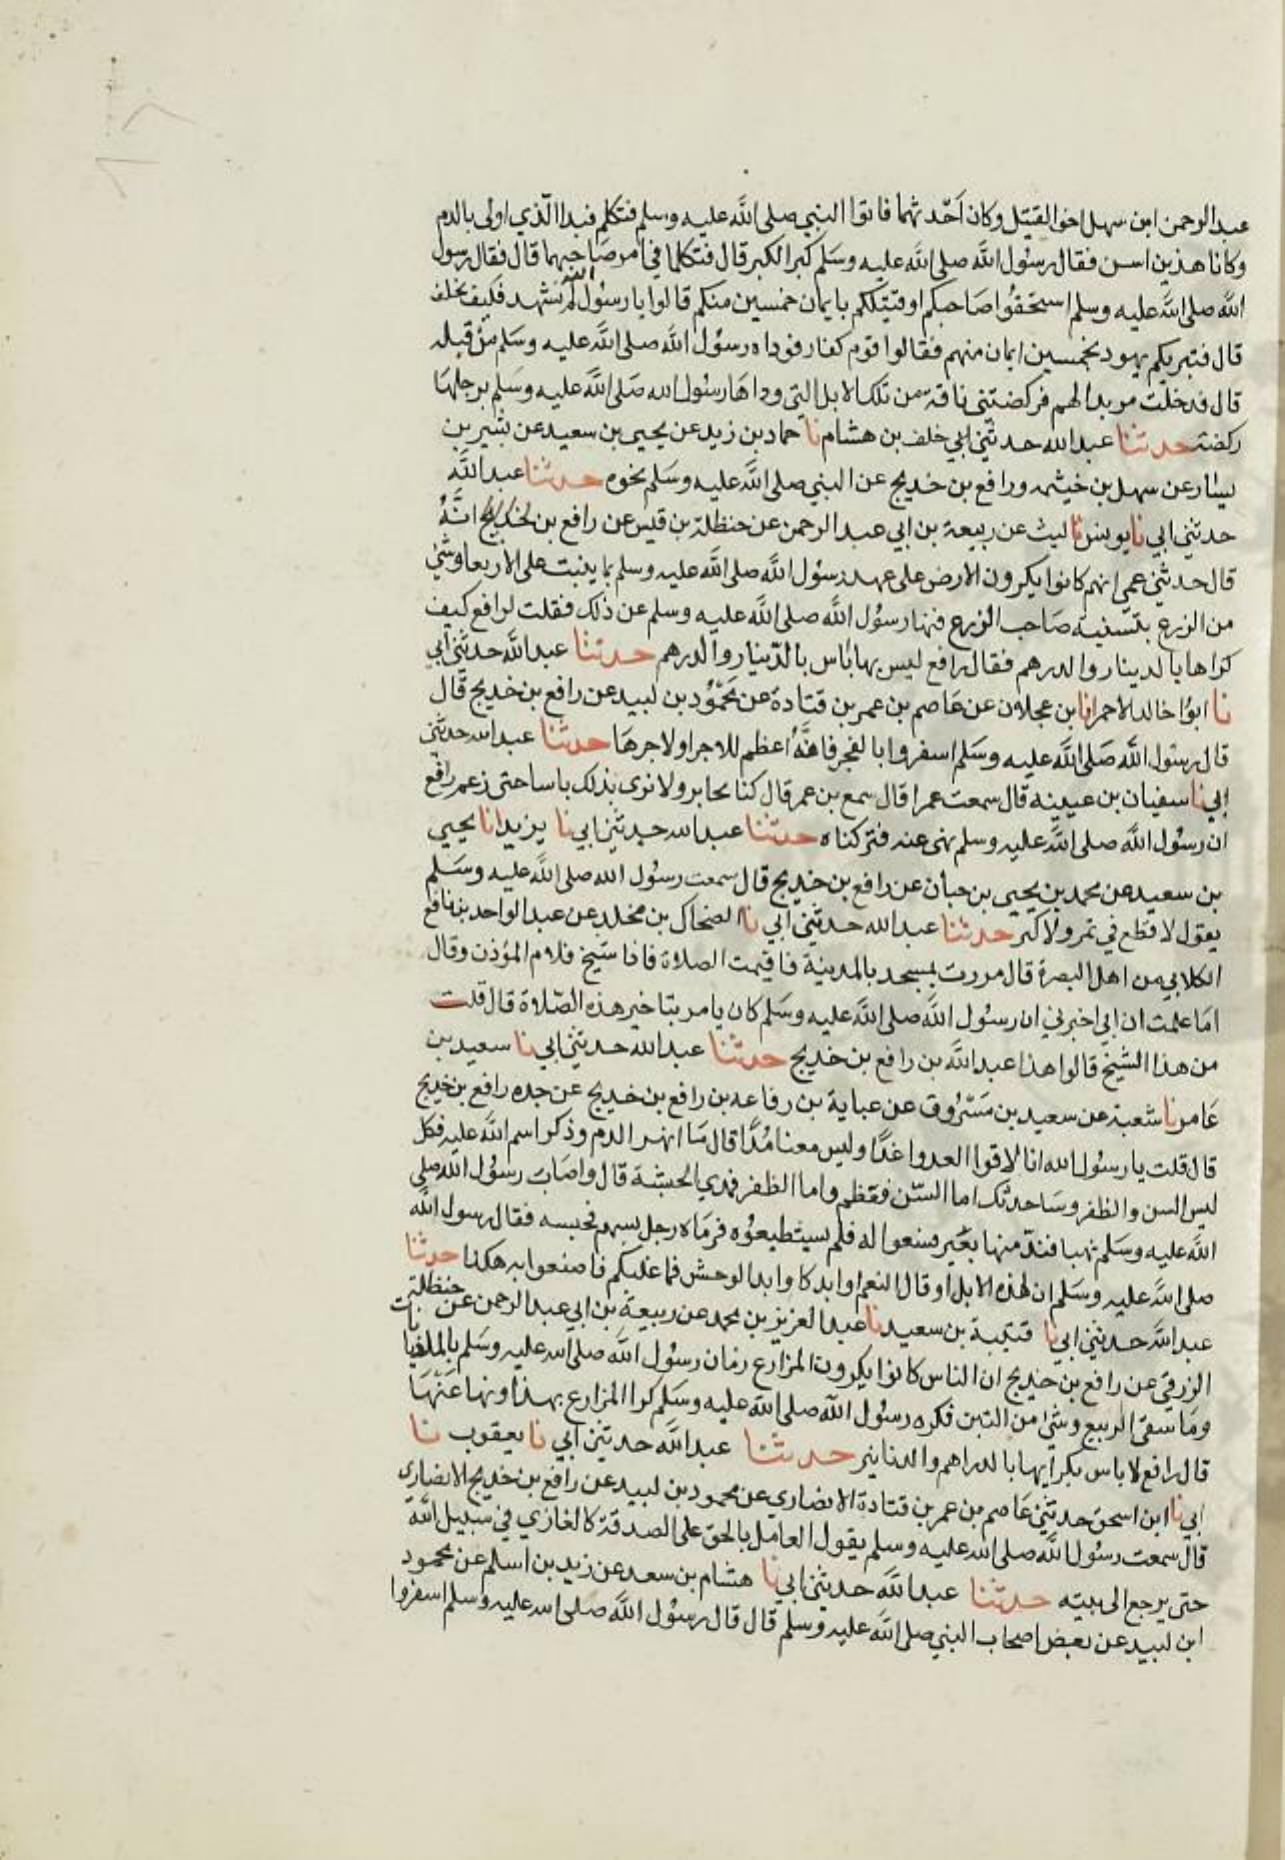 عبد الرحمن ابن سهل اخو القتيل وكان احدثهما فاتوا النبي صلى الله عليه وسلم فتكلم فبدا الذي اولى بالدم
وكانا هذين اسن فقال رسول الله صلى الله عليه وسلم كبر الكبر قال فتكلما في امر صاحبهما قال فقال رسول
الله صلى الله عليه وسلم استحقوا صاحبكم او قتيلكم بايمان خمسين منكم قالوا يا رسول الله لم نشهد فكيف نحلف
قال فتبريكم يهود بخمسين ايمان منهم فقالوا قوم كفار فوداه رسول الله صلى الله عليه وسلم من قبله
قال فدخلت مربدا لهم فركضتني ناقة من تلك الابل التي وداها رسول الله صلى الله عليه وسلم برجلها
ركضة حدثنا عبد الله حدثني ابي خلف بن هشام نا حماد بن زيد عن يحيى بن سعيد عن بشير بن
يسار عن سهل بن خيثمه ورافع بن خديج عن النبي صلى الله عليه وسلم نحوه حدثنا عبد الله
حدثني ابي نا يونس نا ليث عن ربيعة بن ابي عبد الرحمن عن حنظلة بن قيس عن رافع بن خديج انه
قال حدثني عمي انهم كانوا يكرون الارض على عهد رسول الله صلى الله عليه وسلم بما ينبت على الاربعا وشي
من الزرع يستثنيه صاحب الزرع فنهنا رسول الله صلى الله عليه وسلم عن ذلك فقلت لرافع كيف
كراها بالدينار والدرهم فقال رافع ليس بها باس بالدينار والدرهم حدثنا عبد الله حدثني ابي
نا ابوا خالد الاحمر انا بن عجلان عن عاصم بن عمر بن قتادة عن محمود بن لبيد عن رافع بن خديج قال
قال رسول الله صلى الله عليه وسلم اسفروا بالفجر فانه اعظم للاجر او لاجرها حدثنا عبد الله حدثني
ابي نا سفيان بن عيينه قال سمعت عمرا قال سمع بن عمر قال كنا نخابر ولا نرى بذلك باسا حتى زعم رافع
ان رسول الله صلى الله عليه وسلم نهى عنه فتركناه حدثنا عبد الله حدثني ابي نا يزيد انا يحيى
بن سعيد عن محمد بن يحيى بن حبان عن رافع بن خديج قال سمعت رسول الله صلى الله عليه وسلم
يقول لا قطع في ثمر ولا كثر حدثنا عبد الله حدثني ابي نا الضحاك بن مخلد عن عبد الواحد بن نافع
الكلابي من اهل البصرة قال مررت بمسجد بالمدينة فاقيمت الصلاة فاذا شيخ فلام المؤذن وقال
اما علمت ان ابي اخبرني ان رسول الله صلى الله عليه وسلم كان يامر بتاخير هذه الصلاة قال قلت
من هذا الشيخ قالوا هذا عبد الله بن رافع بن خديج حدثنا عبد الله حدثني ابي نا سعيد بن
عامر نا شعبة عن سعيد بن مسروق عن عباية بن رفاعه بن رافع بن خديج عن جده رافع بن خديج
قال قلت يا رسول الله انا لاقوا العدوا غدا وليس معنا مدا قال ما انهر الدم وذكر اسم الله عليه فكل
ليس السن والظفر وساحدثك اما السن فعظم واما الظفر فمدي الحبشة قال واصاب رسول الله صلى
الله عليه وسلم نهبا فند منها بعير فسعوا له فلم يستطيعوه فرماه رجل بسهم فحبسه فقال رسول الله
صلى الله عليه وسلم ان لهذه الابل او قال النعم اوابد كاوابد الوحش فما غلبكم فاصنعوا به هكذا حدثنا
عبد الله حدثني ابي نا قتيبة بن سعيد نا عبد العزيز بن محمد عن ربيعة بن ابي عبد الرحمن عن حنظلة
الزرقي عن رافع بن خديج ان الناس كانوا يكرون المزارع زمان رسول الله صلى الله عليه وسلم بالماذيانات
وما سقى الربيع وشي من التبن فكره رسول الله صلى الله عليه وسلم كرا المزارع بهذا ونها عنها
قال رافع لا باس بكرايها بالدراهم والدنانير حدثنا عبد الله حدثني ابي نا يعقوب نا
ابي نا ابن اسحق حدثني عاصم بن عمر بن قتادة الانصاري عن محمود بن لبيد عن رافع بن خديج الانصاري
قال سمعت رسول الله صلى الله عليه وسلم يقول العامل بالحق على الصدقة كالغازي في سبيل الله
حتى يرجع الى بيته حدثنا عبد الله حدثني ابي نا هشام بن سعد عن زيد بن اسلم عن محمود
ابن لبيد عن بعض اصحاب النبي صلى الله عليه وسلم قال قال رسول الله صلى الله عليه وسلم اسفروا